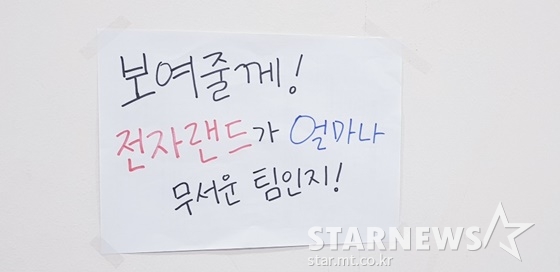 보여줄께!
전자랜드가 얼마나
무서운 팀인지!
STARNEWS
star.mt.co.kr